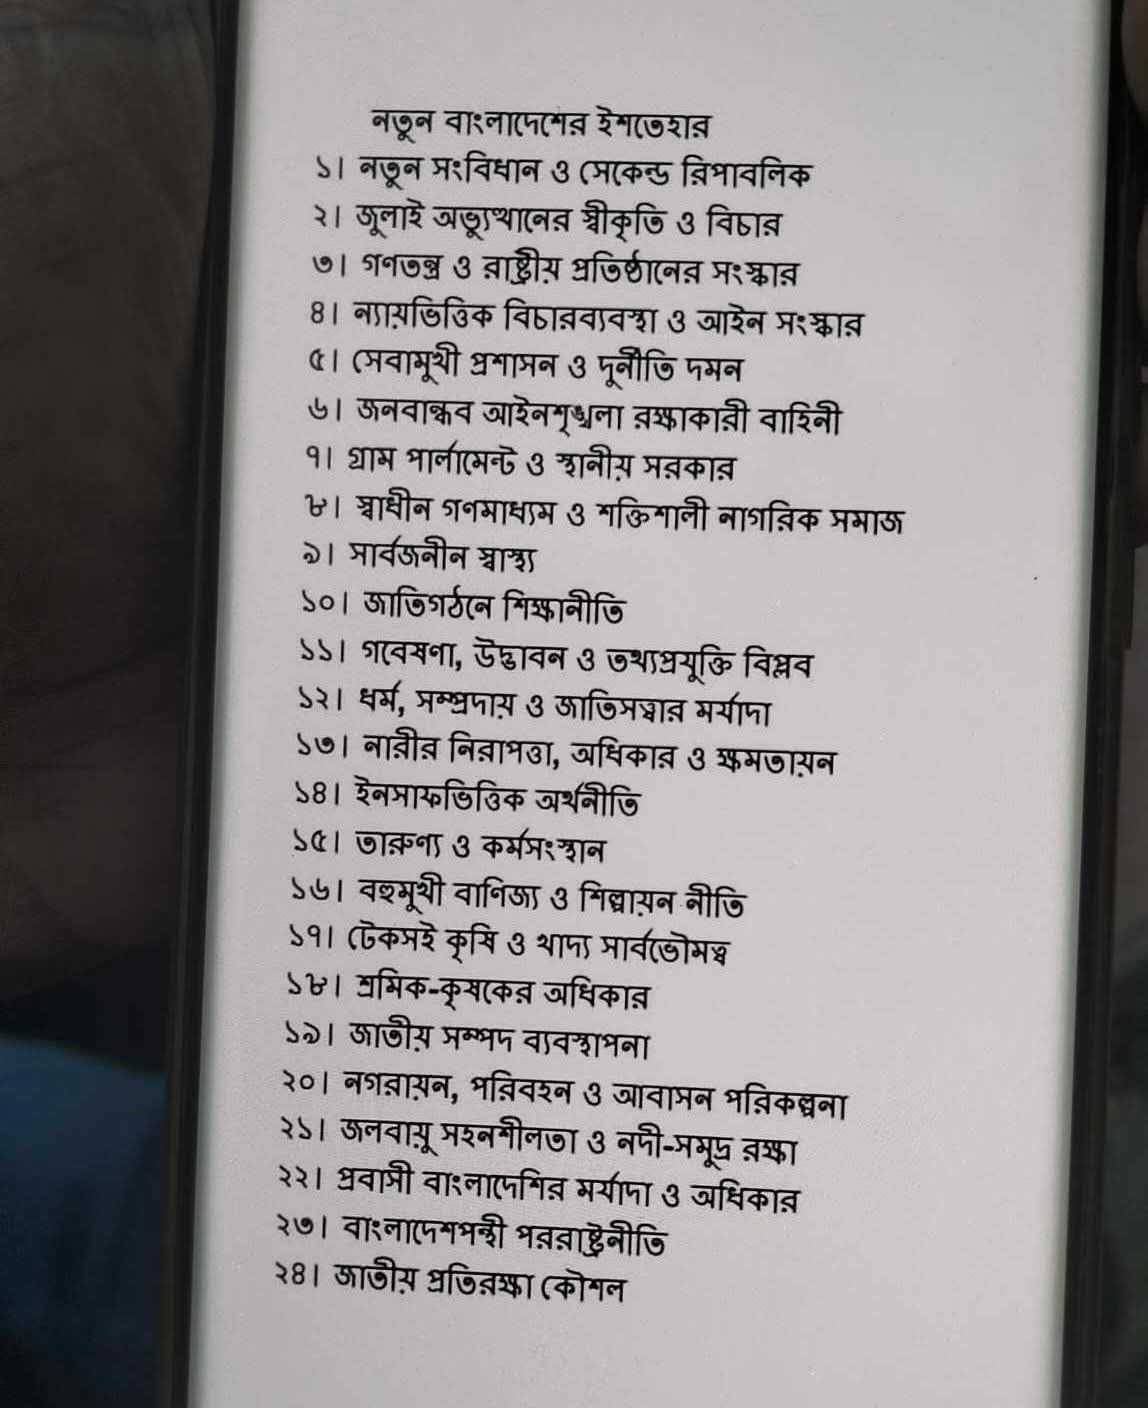 নতুন বাংলাদেশের ইশতেহার
১। নতুন সংবিধান ও সেকেন্ড রিপাবলিক
২। জুলাই অভ্যুত্থানের স্বীকৃতি ও বিচার
৩। গণতন্ত্র ও রাষ্ট্রীয় প্রতিষ্ঠানের সংস্কার
৪। ন্যায়ভিত্তিক বিচারব্যবস্থা ও আইন সংস্কার
৫। সেবামুখী প্রশাসন ও দুর্নীতি দমন
৬। জনবান্ধব আইনশৃঙ্খলা রক্ষাকারী বাহিনী
৭। গ্রাম পার্লামেন্ট ও স্থানীয় সরকার
৮। স্বাধীন গণমাধ্যম ও শক্তিশালী নাগরিক সমাজ
৯। সার্বজনীন স্বাস্থ্য
১০। জাতিগঠনে শিক্ষানীতি
১১। গবেষণা, উদ্ভাবন ও তথ্যপ্রযুক্তি বিপ্লব
১২। ধর্ম, সম্প্রদায় ও জাতিসত্বার মর্যাদা
১৩। নারীর নিরাপত্তা, অধিকার ও ক্ষমতায়ন
১৪। ইনসাফভিত্তিক অর্থনীতি
১৫। তারুণ্য ও কর্মসংস্থান
১৬। বহুমুখী বাণিজ্য ও শিল্পায়ন নীতি
১৭। টেকসই কৃষি ও খাদ্য সার্বভৌমত্ব
১৮। শ্রমিক-কৃষকের অধিকার
১৯। জাতীয় সম্পদ ব্যবস্থাপনা
২০। নগরায়ন, পরিবহন ও আবাসন পরিকল্পনা
২১। জলবায়ু সহনশীলতা ও নদী-সমুদ্র রক্ষা
২২। প্রবাসী বাংলাদেশির মর্যাদা ও অধিকার
২৩। বাংলাদেশপন্থী পররাষ্ট্রনীতি
২৪। জাতীয় প্রতিরক্ষা কৌশল